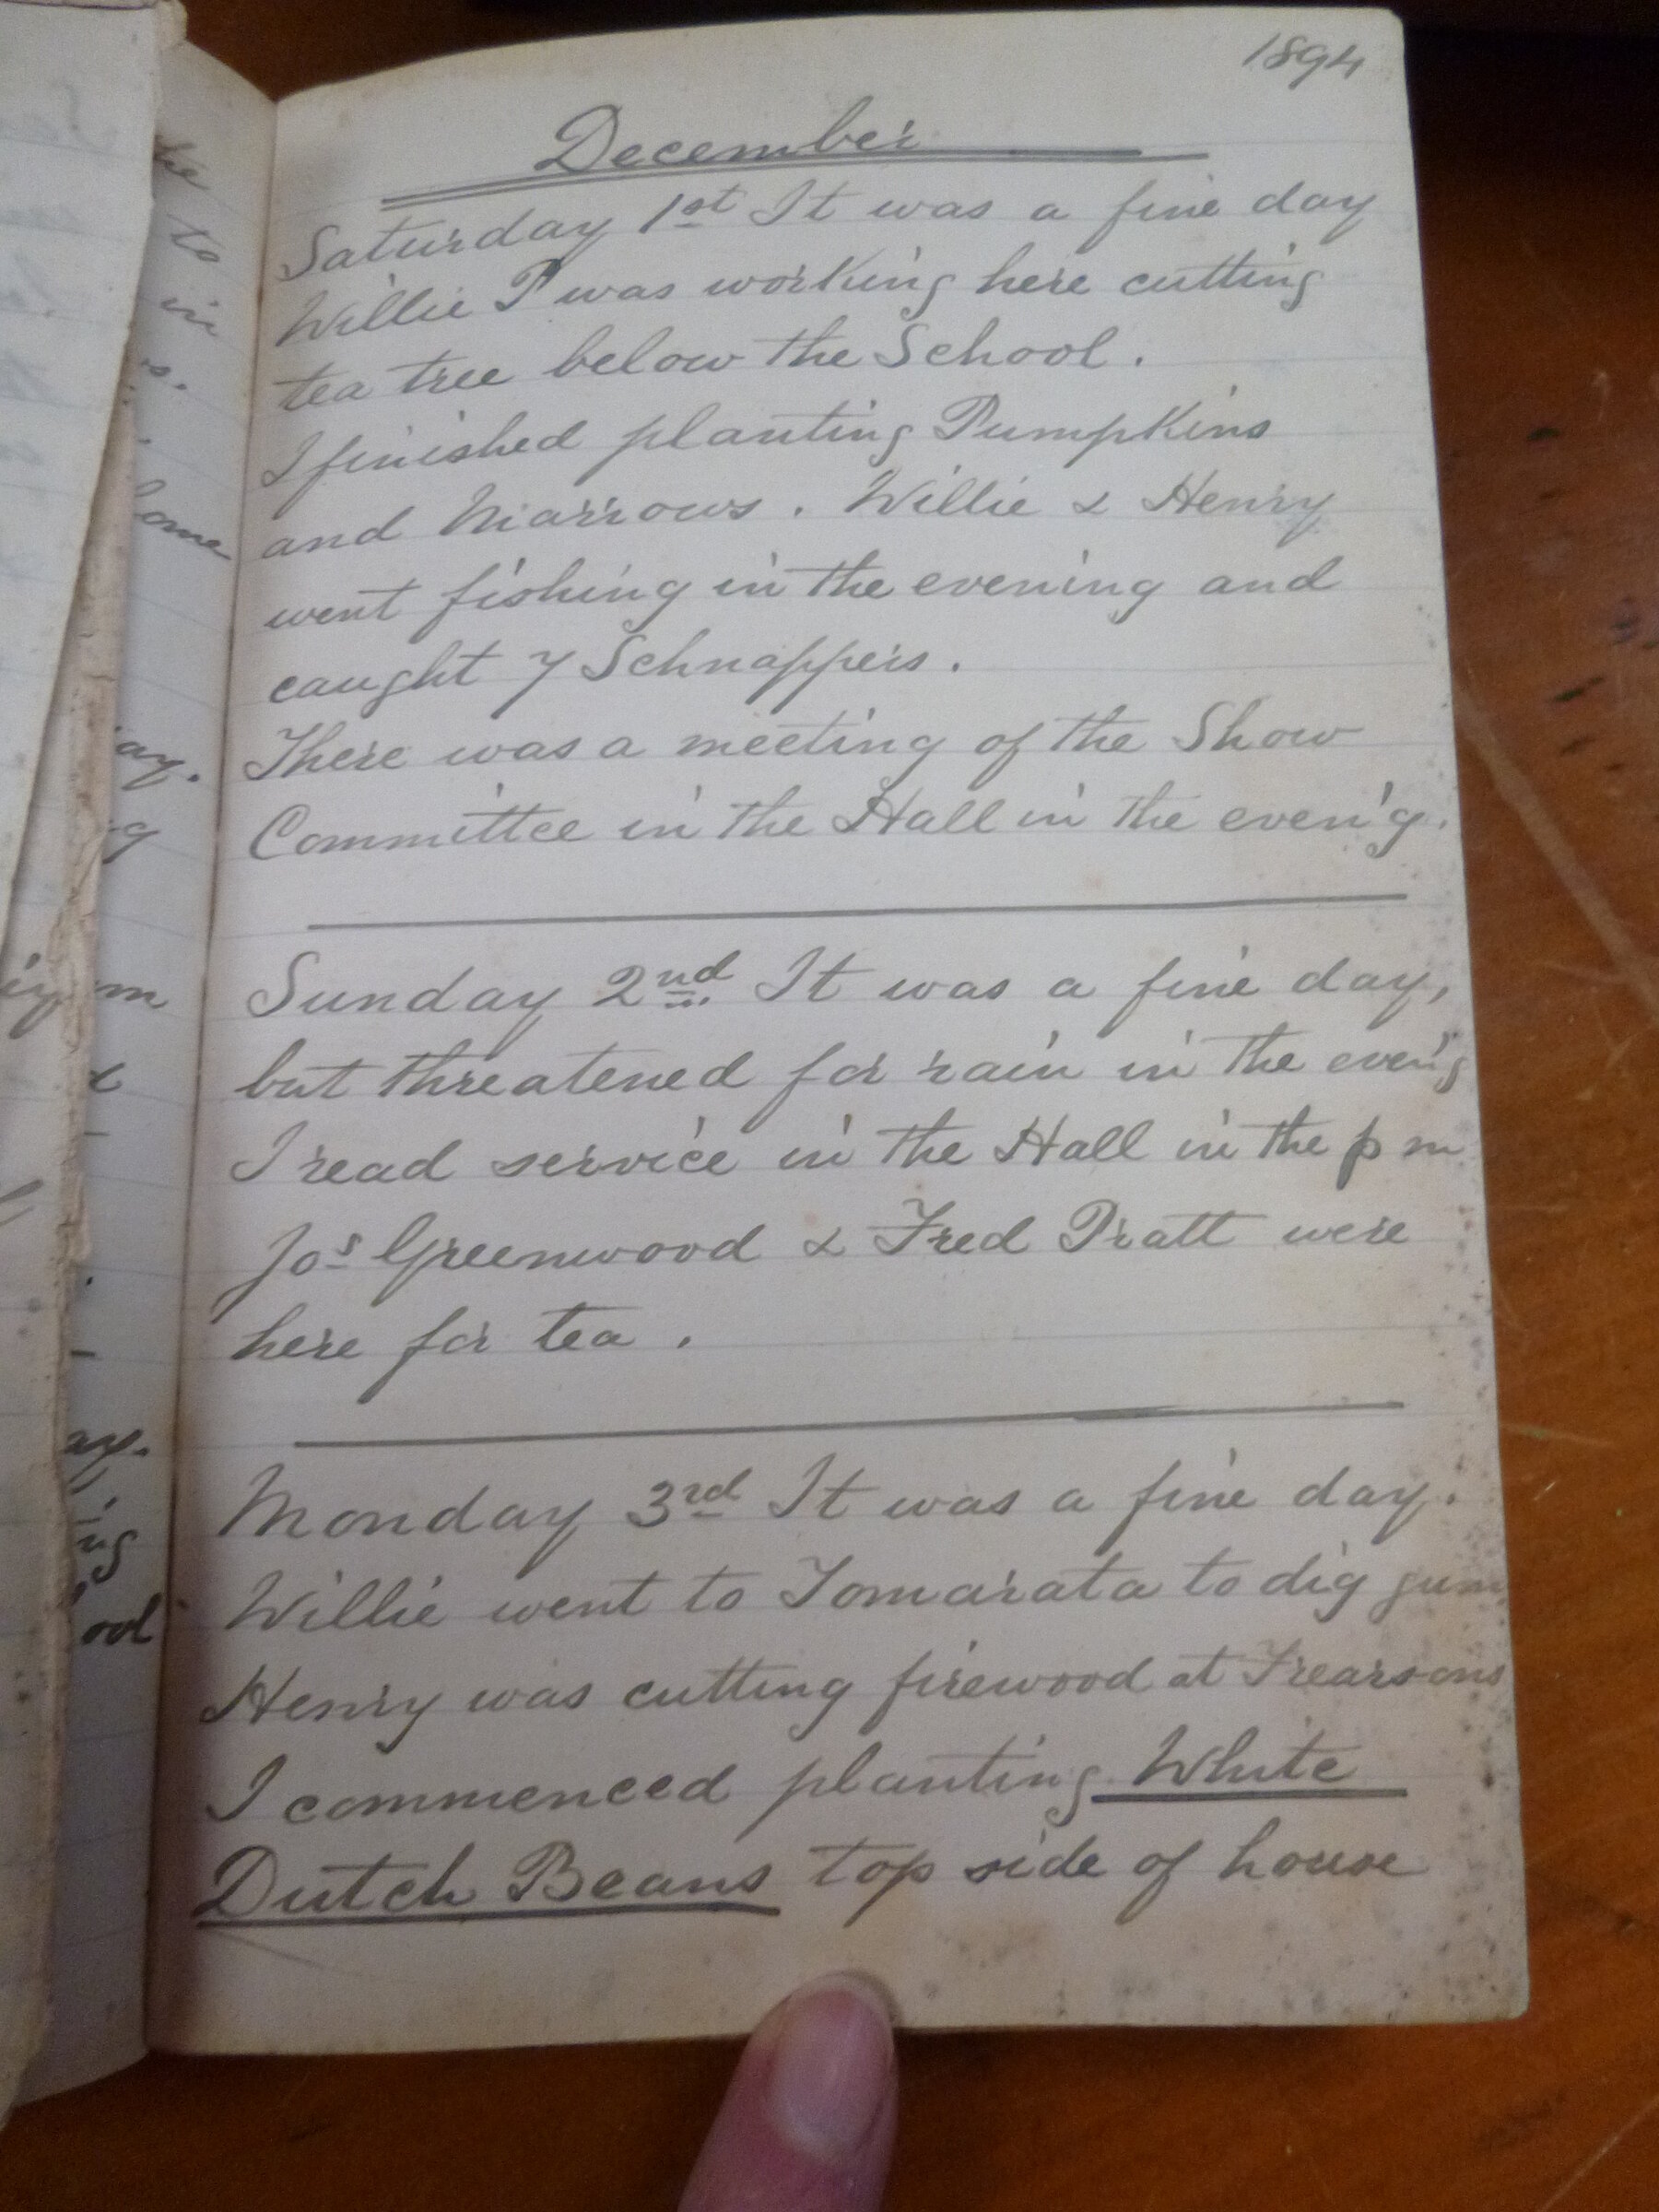 1894
December
Saturday 1st It was a fine day
Willie P was working here cutting
tea tree below the School.
I finished planting Pumpkins
and Marrows. Willie & Henry
went fishing in the evening and
caught 7 Schnappers.
There was a meeting of the Show
Committee in the Hall in the even'g.
Sunday 2nd It was a fine day,
but threatened for rain in the even'g
I read service in the Hall in the p m
Jos Greenwood & Fred Pratt were
here for tea.
Monday 3rd It was a fine day.
Willie went to Tomarata to dig gum
Henry was cutting firewood at Frearsons
I commenced planting White
Dutch Beans top side of house